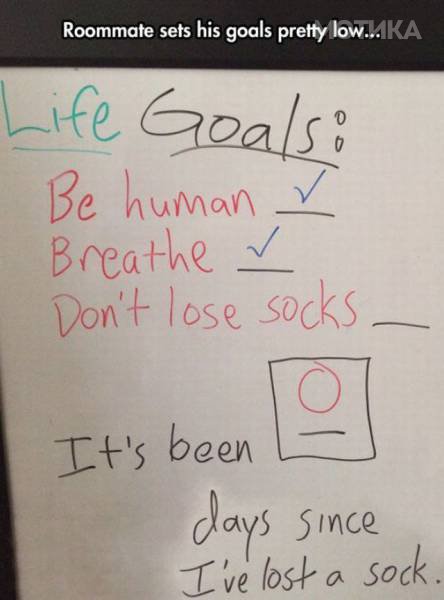 Roommate sets his goals pretty low...
МОТИКА
Life Goals:
Be human ✓
Breathe ✓
Don't lose socks __
It's been 0
days since
I've lost a sock.